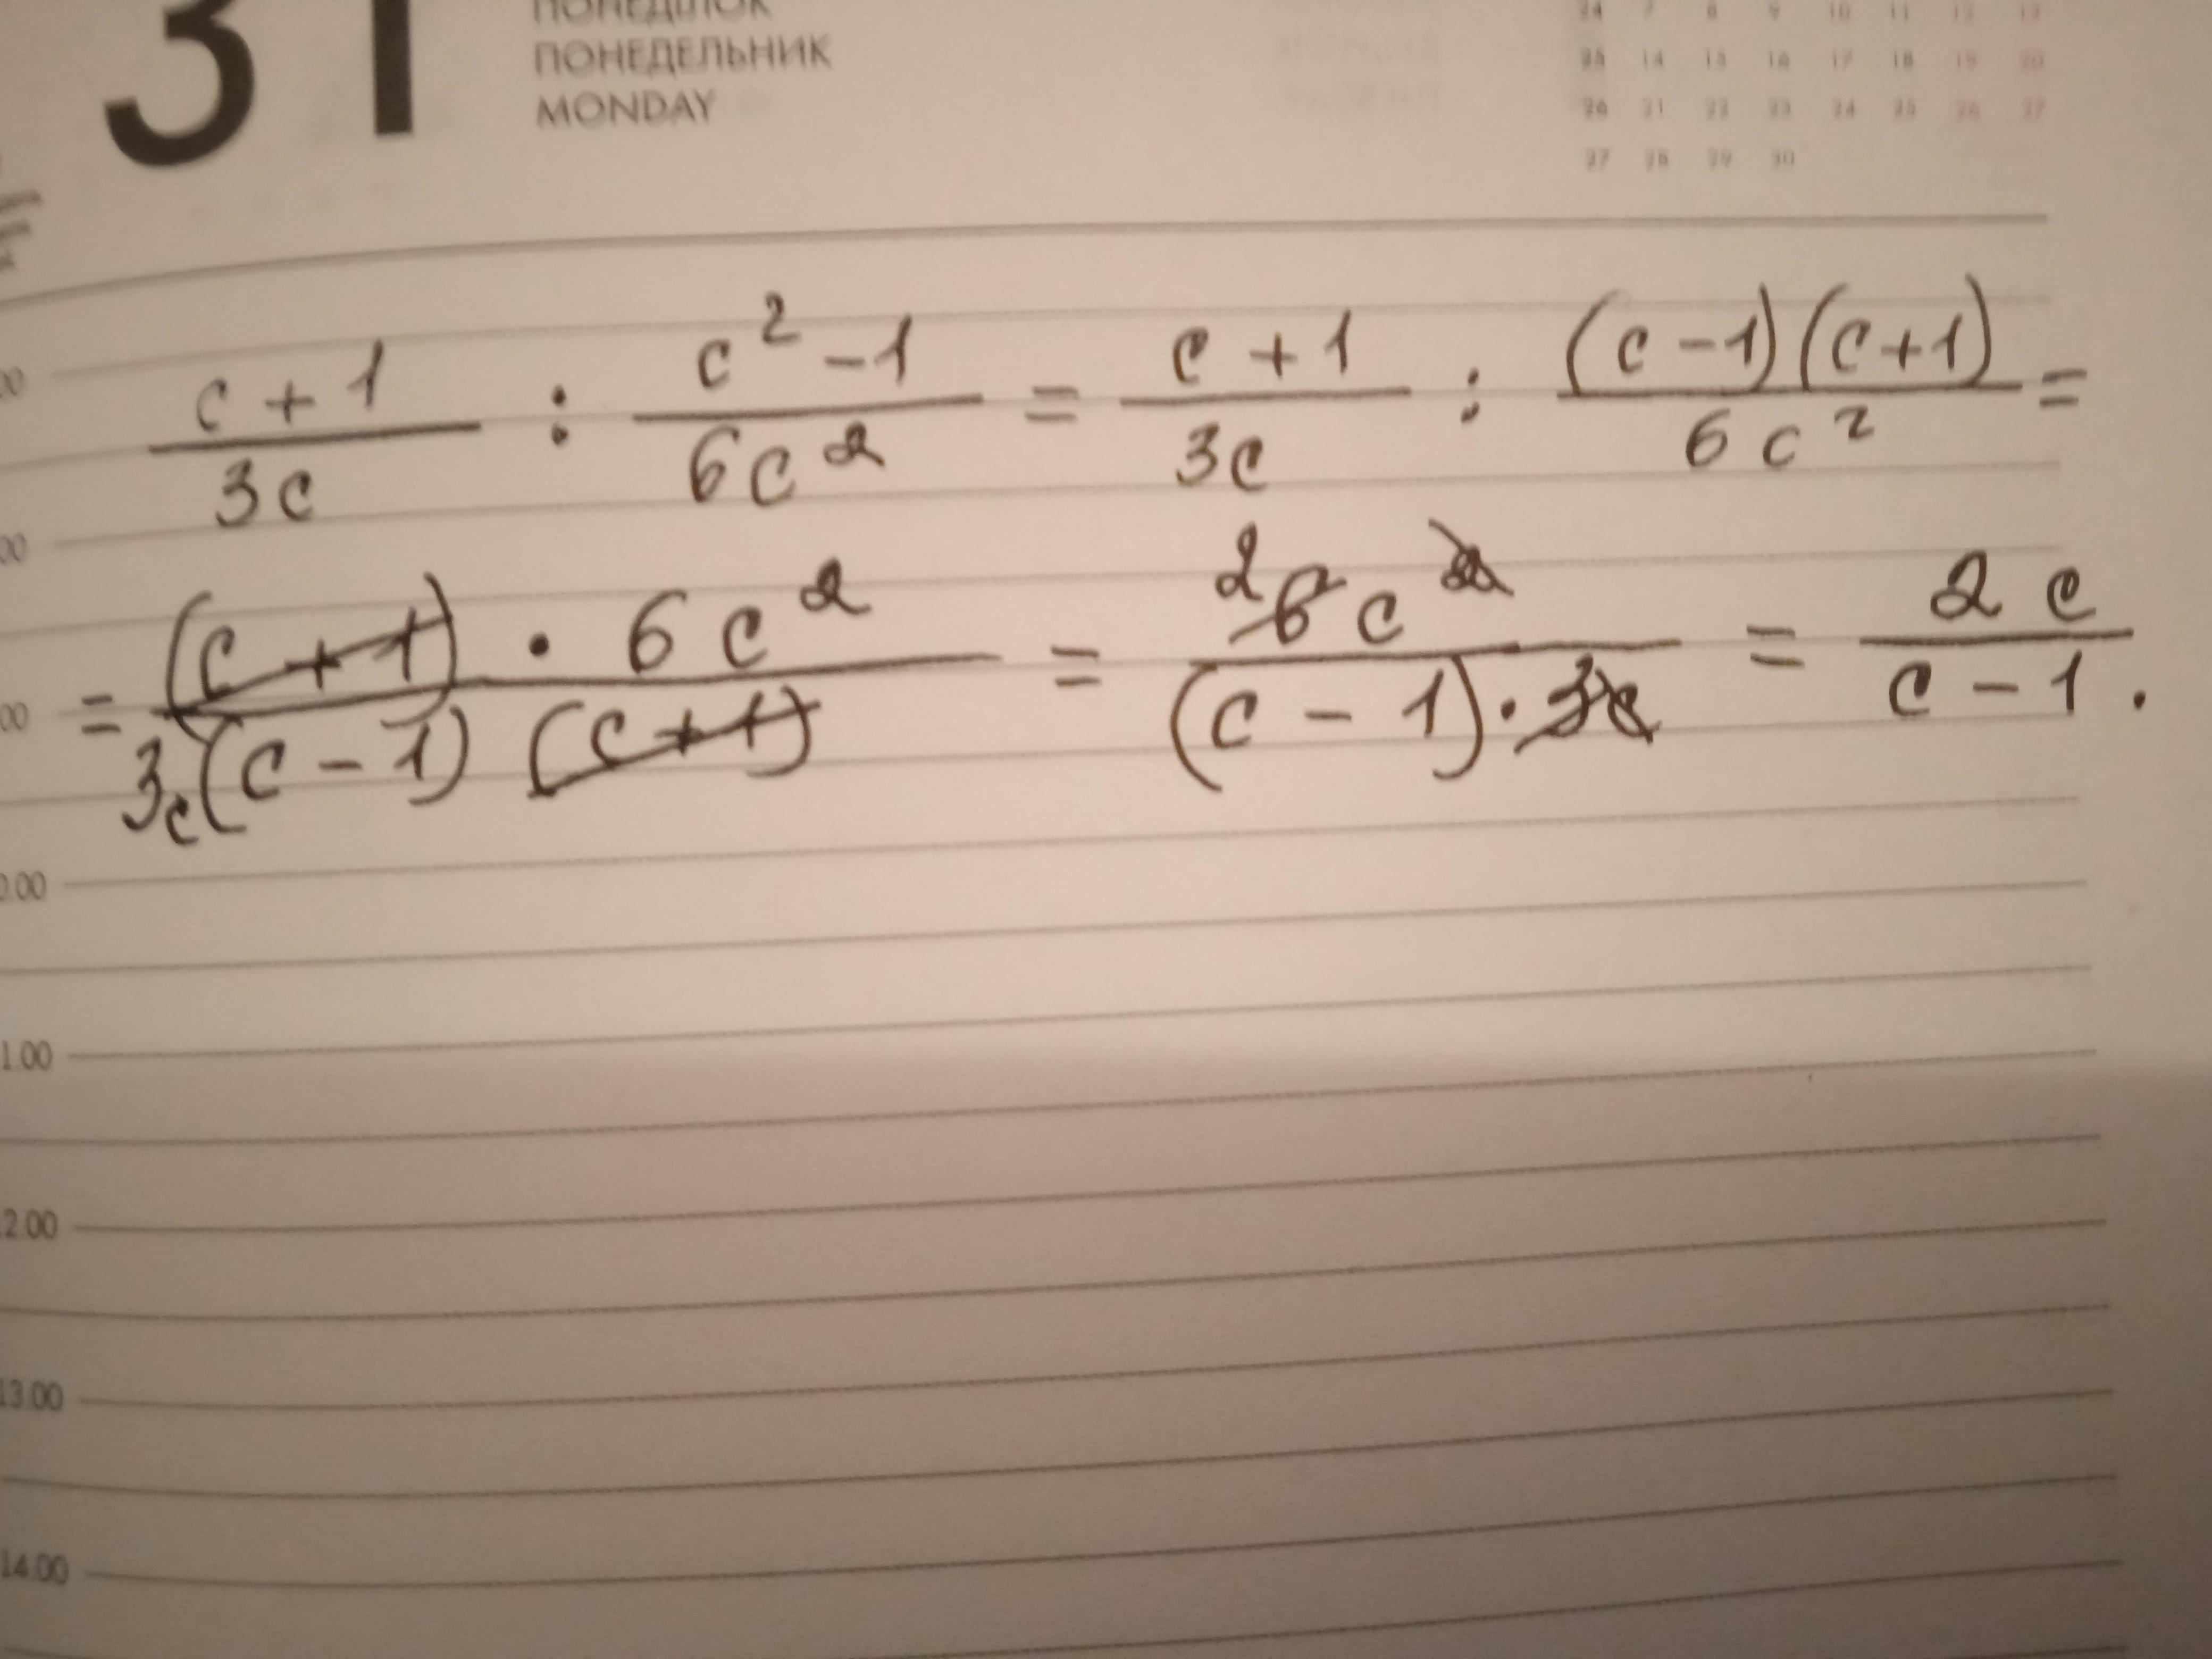 31
ПОНЕДІЛОК
ПОНЕДЕЛЬНИК
MONDAY
24 7 8 9 10 11 12 13
25 14 15 16 17 18 19 20
26 21 22 23 24 25 26 27
27 28 29 30
(c + 1)/(3c) : (c² - 1)/(6c²) = (c + 1)/(3c) : ((c - 1)(c + 1))/(6c²) =
= ((c + 1) · 6c²)/(3c(c - 1)(c + 1)) = (2 6c²)/((c - 1) · 3c) = (2c)/(c - 1).
00
00
00
0.00
1.00
2.00
13.00
14.00